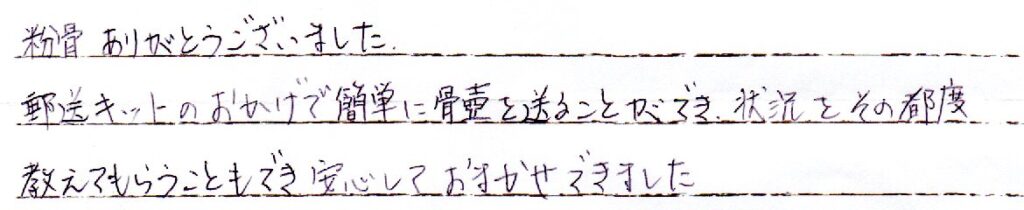 粉骨 ありがとうございました.
郵送キットのおかげで簡単に骨壷を送ることができ、状況をその都度
教えてもらうこともでき安心しておまかせできました